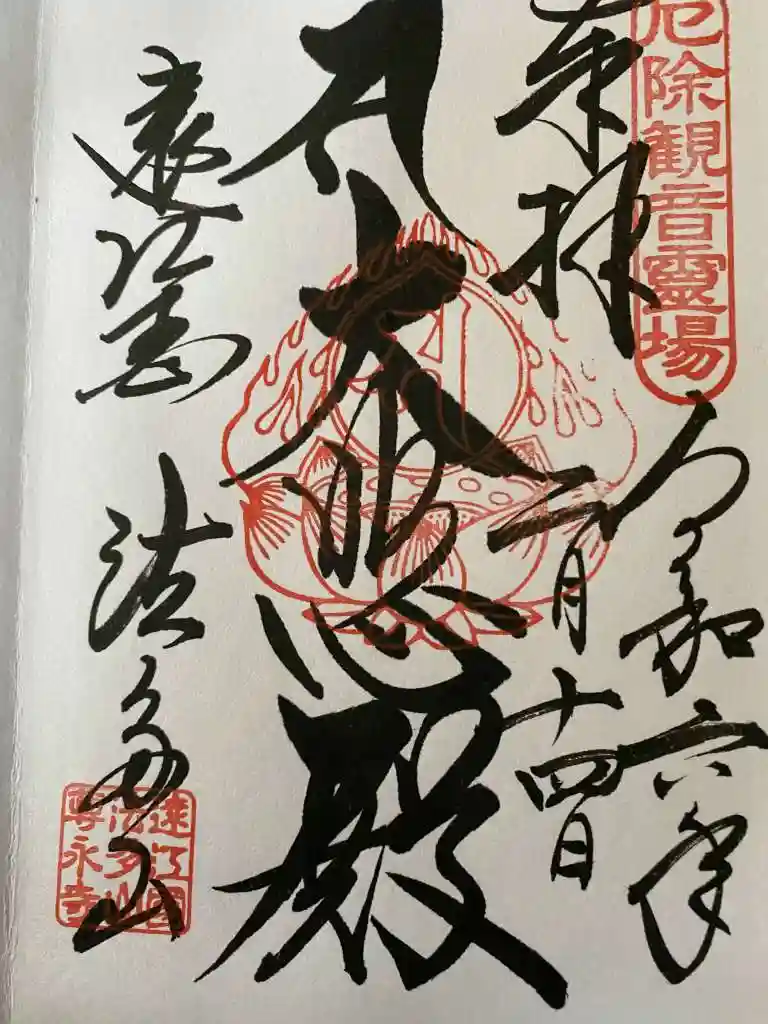 厄除観音靈場
奉拝
令和六年
二月十四日
大悲殿
遠江
法多山
遠江國
法多山
尊永寺